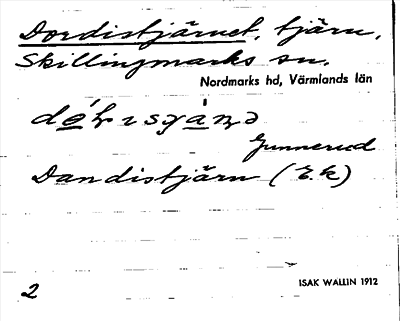 Dordistjärnet, tjärn,
Skillingmarks sn.
Nordmarks hd, Värmlands län
Gunnerud
Dandistjärn (E.K)
ISAK WALLIN 1912
2